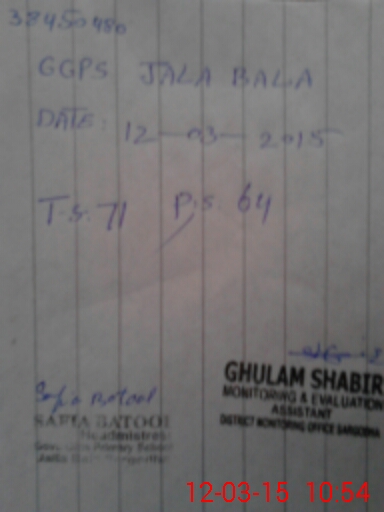 38450480
GGPS JALA BALA
DATE: 12-03-2015
T.S. 71 P.S. 64
Safia Batool
SAFIA BATOOL
Headmistress
Govt. Girls Primary School
GHULAM SHABIR
MONITORING & EVALUATION
ASSISTANT
DISTRICT MONITORING OFFICE SARGODHA
12-03-15 10:54